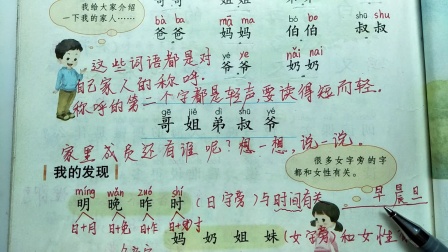 我给大家介绍
一下我的家人……
bà ba mā ma bó bo shū shu
爸爸 妈妈 伯伯 叔叔
这些词语都是对
yé ye nǎi nai
爷爷 奶奶
自己家人的称呼.
称呼的第二个字都是轻声,要读得短而轻.
gē jiě dì shū yé
哥 姐 弟 叔 爷
家里成员还有谁呢?想一想,说一说.
我的发现
很多女字旁的字
都和女性有关。
míng wǎn zuó shí
明 晚 昨 时 (日字旁)与时间有关 早晨旦
日+月 日+免 日+乍 日+寸
妈 奶 姐 妹 (女字旁)和女性